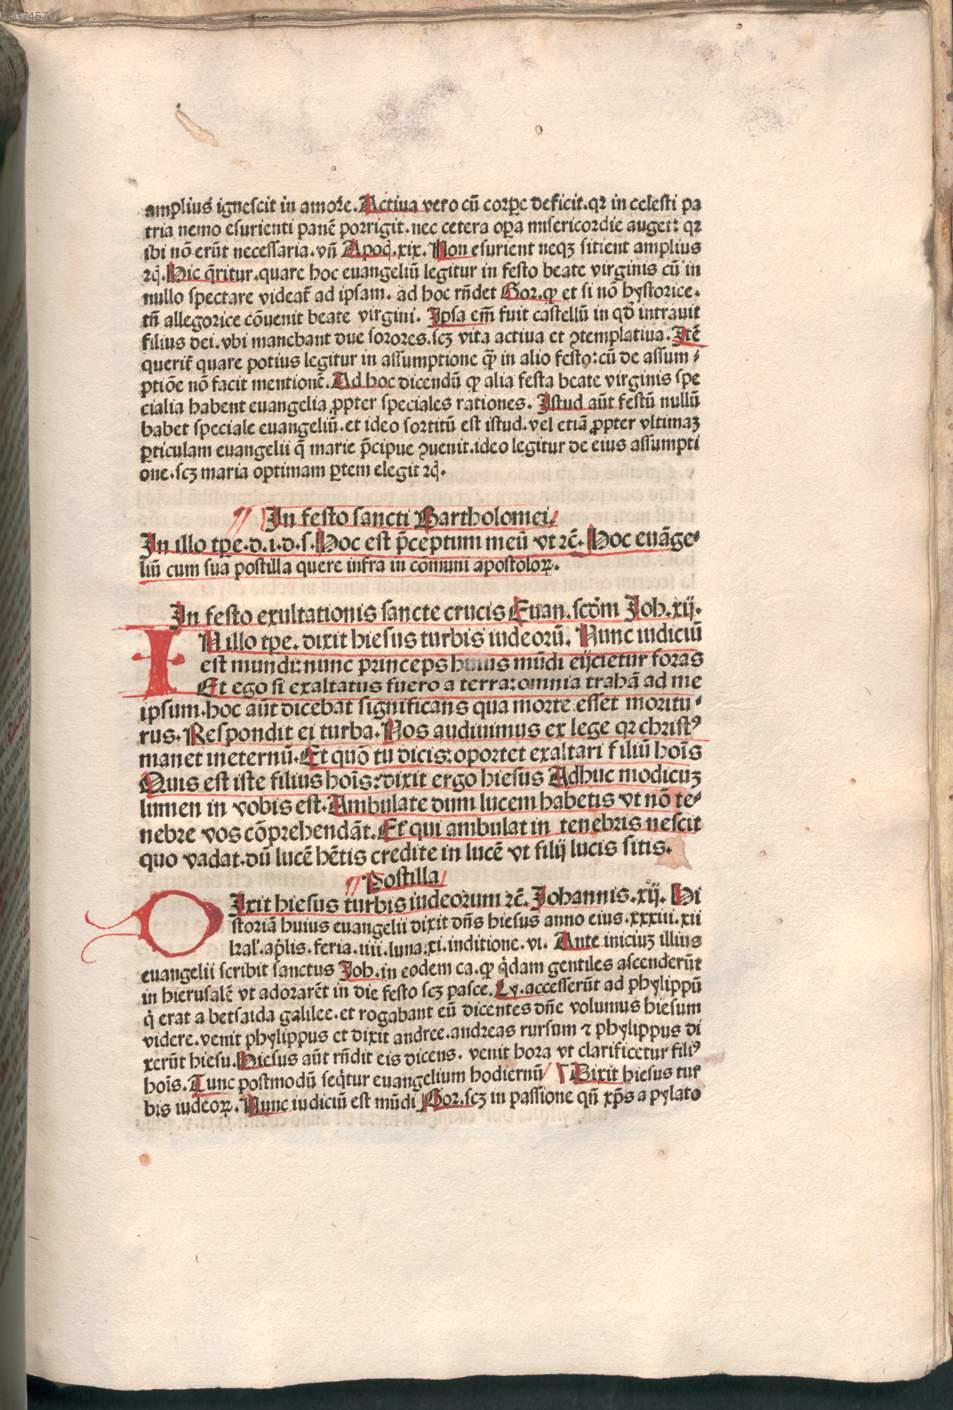 amplius ignescit in amore. Actiua vero cū corꝑe deficit. qꝛ in celesti pa
tria nemo esurienti panē porrigit. nec cetera oꝑa misericordie auget: qꝛ
ibi nō erūt necessaria. vñ Apoq̄. xix. Non esurient neqꝫ sitient amplius
ꝛq̄. Hic q̄ritur. quare hoc euangeliū legitur in festo beate virginis cū in
nullo spectare videat̄ ad ipsam. ad hoc rñdet Gor. ꝙ et si nō hystorice.
tñ allegorice cōuenit beate virgini. Ipsa em̄ fuit castellū in qd̄ intrauit
filius dei. vbi manebant due sorores. scꝫ vita actiua et ꝯtemplatiua. Itē
querit̄ quare potius legitur in assumptione ꝙ̄ in alio festo: cū de assum⸗
ptiōe nō facit mentionē. Ad hoc dicendū ꝙ alia festa beate virginis spe
cialia habent euangelia ꝓpter speciales rationes. Istud aūt festū nullū
habet speciale euangeliū. et ideo sortitū est istud. vel etiā ꝓpter vltimaꝫ
ꝑticulam euangelii q̄ marie p̄cipue ꝯuenit. ideo legitur de eius assumpti
one. scꝫ maria optimam ꝑtem elegit ꝛq̄.
In festo sancti Bartholomei
In illo tꝑe. d. i. d. s. Hoc est p̄ceptum meū vt ꝛc̄. Hoc euāge⸗
liū cum sua postilla quere infra in cōmuni apostoloꝝ.
In festo exultationis sancte crucis Euan. scd̄m Joh. xij.
IN illo tꝑe. dixit hiesus turbis iudeorū. Nunc iudiciū
est mundi: nunc princeps huius mūdi eijcietur foras
Et ego si exaltatus fuero a terra: omnia trahā ad me
ipsum. hoc aūt dicebat significans qua morte esset moritu⸗
rus. Respondit ei turba. Nos audiuimus ex lege qꝛ christꝰ
manet ineternū. Et quō tu dicis: oportet exaltari filiū hoīs
Quis est iste filius hoīs? dixit ergo hiesus Adhuc modicuꝫ
lumen in vobis est. Ambulate dum lucem habetis vt nō te⸗
nebre vos cōprehendāt. Et̄ qui ambulat in tenebris nescit
quo vadat. dū lucē hētis credite in lucē vt filij lucis sitis.
Postilla
DIxit hiesus turbis iudeorum ꝛc̄. Johannis. xij. Hi
storiā huius euangelii dixit dñs hiesus anno eius. xxxiii. xii
kal'. apl̄is. feria. iiii. luna. xi. inditione. vi. Ante iniciuꝫ illius
euangelii scribit sanctus Joh. in eodem ca. ꝙ q̄dam gentiles ascenderūt
in hierusalē vt adorarēt in die festo scꝫ pasce. Ly. accesserūt ad phylippū
q̄ erat a betsaida galilee. et rogabant eū dicentes dñe volumus hiesum
videre. venit phylippus et dixit andree. andreas rursum ⁊ phylippus di
xerūt hiesu. Hiesus aūt rñdit eis dicens. venit hora vt clarificetur filiꝰ
hoīs. Tunc postmodū seq̄tur euangelium hodiernū Dixit hiesus tur
bis iudeoꝝ. Nunc iudiciū est mūdi Gor. scꝫ in passione qñ xp̄s a pylato